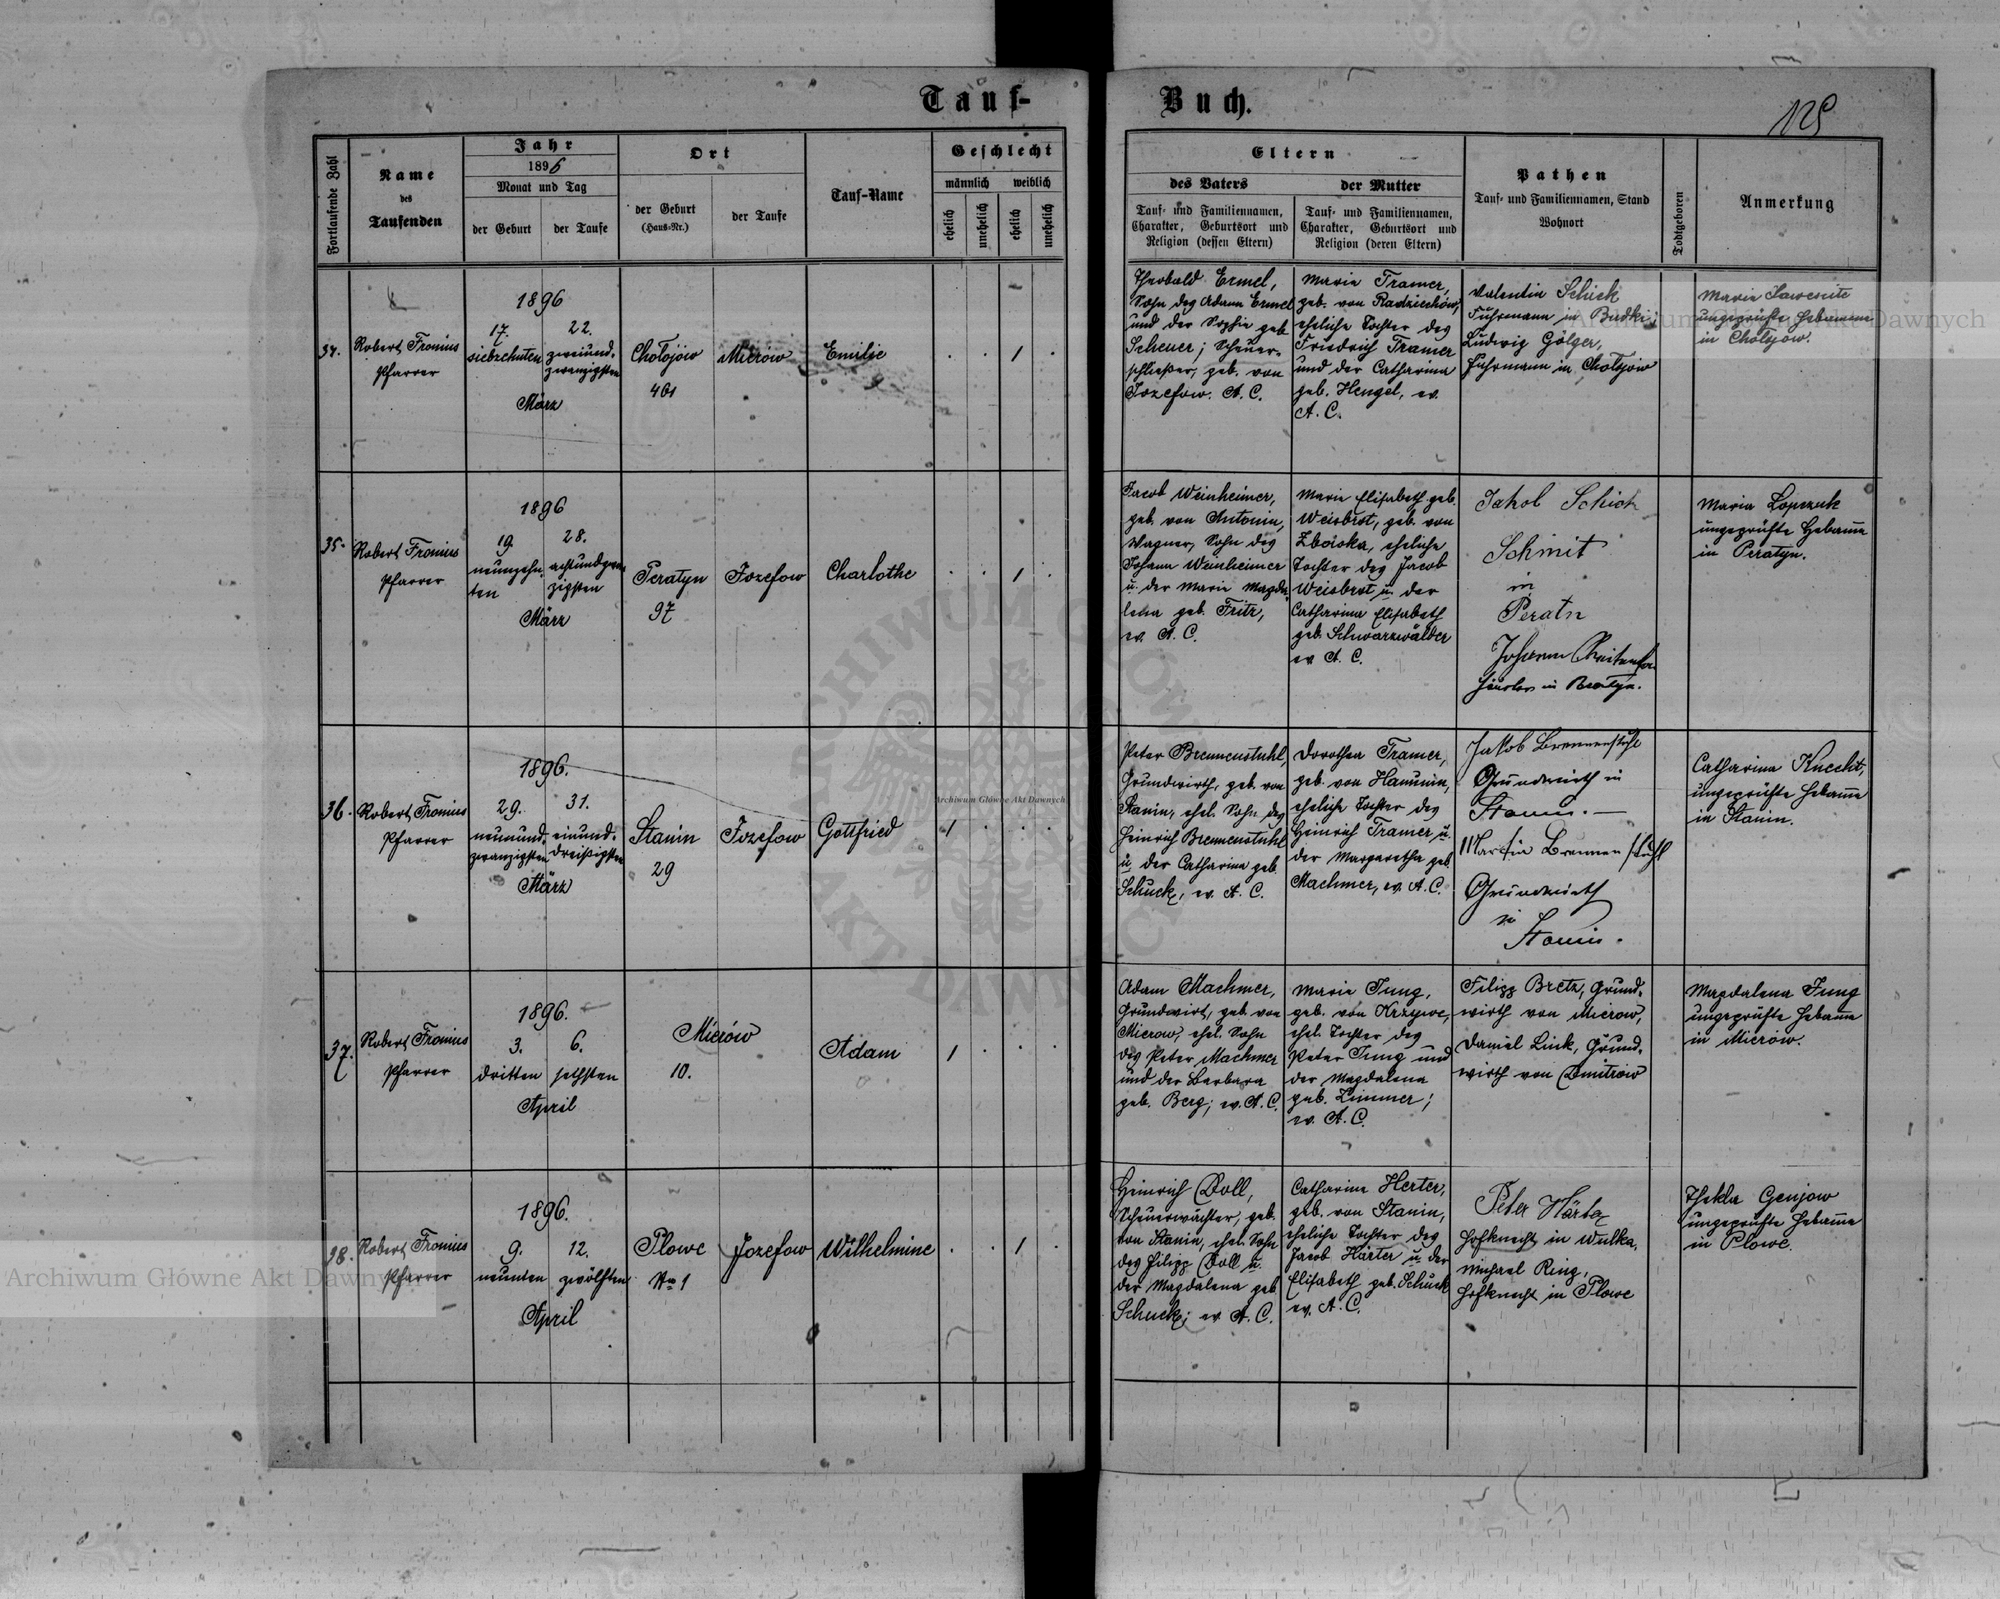 Tauf-
Buch.
125
Fortlaufende Zahl
Name
des
Taufenden
Jahr
1896
Monat und Tag
der Geburt
der Taufe
Ort
der Geburt
(Haus-Nr.)
der Taufe
Tauf-Name
Geschlecht
männlich
weiblich
ehelich
unehelich
ehelich
unehelich
Eltern
des Vaters
Tauf- und Familiennamen,
Charakter, Geburtsort und
Religion (dessen Eltern)
der Mutter
Tauf- und Familiennamen,
Charakter, Geburtsort und
Religion (deren Eltern)
Pathen
Tauf- und Familiennamen, Stand
Wohnort
Todtgeboren
Anmerkung
34.
Robert Fronius
Pfarrer
1896
17.
siebzehnten
22.
zweiund-
zwanzigsten
März
Chołojów
461
Mierów
Emilie
1
Theobald Ermel,
Sohn des Adam Ermel
und der Sophie geb.
Scheuer; Scheuer-
schließer, geb. von
Jozefow. A. C.
Marie Tramer,
geb. von Radziechów,
eheliche Tochter des
Friedrich Tramer
und der Catharina
geb. Hengel, ev.
A. C.
Valentin Schick
Fuhrmann in Budki;
Ludwig Gölger,
Fuhrmann in Chołojów
Marie
ungeprüfte Hebamme
in Chołojów.
35.
Robert Fronius
Pfarrer
1896
19
neunzehn-
ten
28.
achtundzwan-
zigsten
März
Peratyn
97
Jozefow
Charlothe
1
Jacob Weinheimer,
geb. von Antonin,
Wagner, Sohn des
Johann Weinheimer
u. der Marie Magda-
lena geb. Fritz,
ev. A. C.
Marie Elisabeth geb.
Weisbrot, geb. von
Zboiska, eheliche
Tochter des Jacob
Weisbrot u. der
Catharina Elisabeth
geb. Schwarzwälder
ev A. C.
Jakob Schick
Schmit
in
Peratn
Johann
in
Maria Lopczuk
ungeprüfte Hebamme
in Peratyn.
36.
Robert Fronius
Pfarrer
1896.
29.
neunund-
zwanzigsten
31.
einund-
dreißigsten
März
Stanin
29
Jozefow
Gottfried
1
Peter Brennenstuhl,
Grundwirth, geb. von
Stanin, ehel. Sohn des
Heinrich Brennenstuhl
u. der Catharina geb.
Schuck, ev. A. C.
Dorothea Tramer,
geb. von Hanunin,
eheliche Tochter des
Heinrich Tramer u.
der Margaretha geb.
Machmer, ev. A. C.
Jakob Brennenstuhl
Grundwirth in
Stanin. —
Martin Brennenstuhl
Grundwirth
in
Stanin.
Catharina Knecht,
ungeprüfte Hebamme
in Stanin.
37.
Robert Fronius
Pfarrer
1896.
3.
dritten
6.
sechsten
April
Mierów
10.
Adam
1
Adam Machmer,
Grundwirt, geb. von
Mierow, ehel. Sohn
des Peter Machmer
und der Barbara
geb. Berg; ev. A. C.
Marie Jung,
geb. von Krzywe,
ehel. Tochter des
Peter Jung und
der Magdalena
geb. Zimmer;
ev. A. C.
Filipp Bretz, Grund-
wirth von Mierow,
Daniel Link, Grund-
wirth von Dmitrów
Magdalena Jung
ungeprüfte Hebamme
in Mierów.
38.
Robert Fronius
Pfarrer
1896.
9.
neunten
12.
zwölften
April
Płowe
No 1
Jozefow
Wilhelmine
1
Heinrich Doll,
Scheuerwächter, geb.
von Stanin, ehel. Sohn
des Filipp Doll u.
der Magdalena geb
Schuck; ev A. C.
Catharina Herter,
geb. von Stanin,
eheliche Tochter des
Jacob Härter u. der
Elisabeth geb. Schuck
ev. A. C.
Peter Härter
Hofknecht in Wulka,
Michael Ring,
Hofknecht in Płowe
Thekla Genjow
ungeprüfte Hebamme
in Płowe.
Archiwum Główne Akt Dawnych
Archiwum Główne Akt Dawnych
Archiwum Główne Akt Dawnych
ARCHIWUM GŁÓWNE AKT DAWNYCH